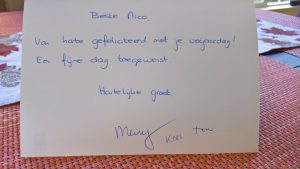 Beste Nico,
Van harte gefeliciteerd met je verjaardag!
Een fijne dag toegewenst.
Hartelijke groet